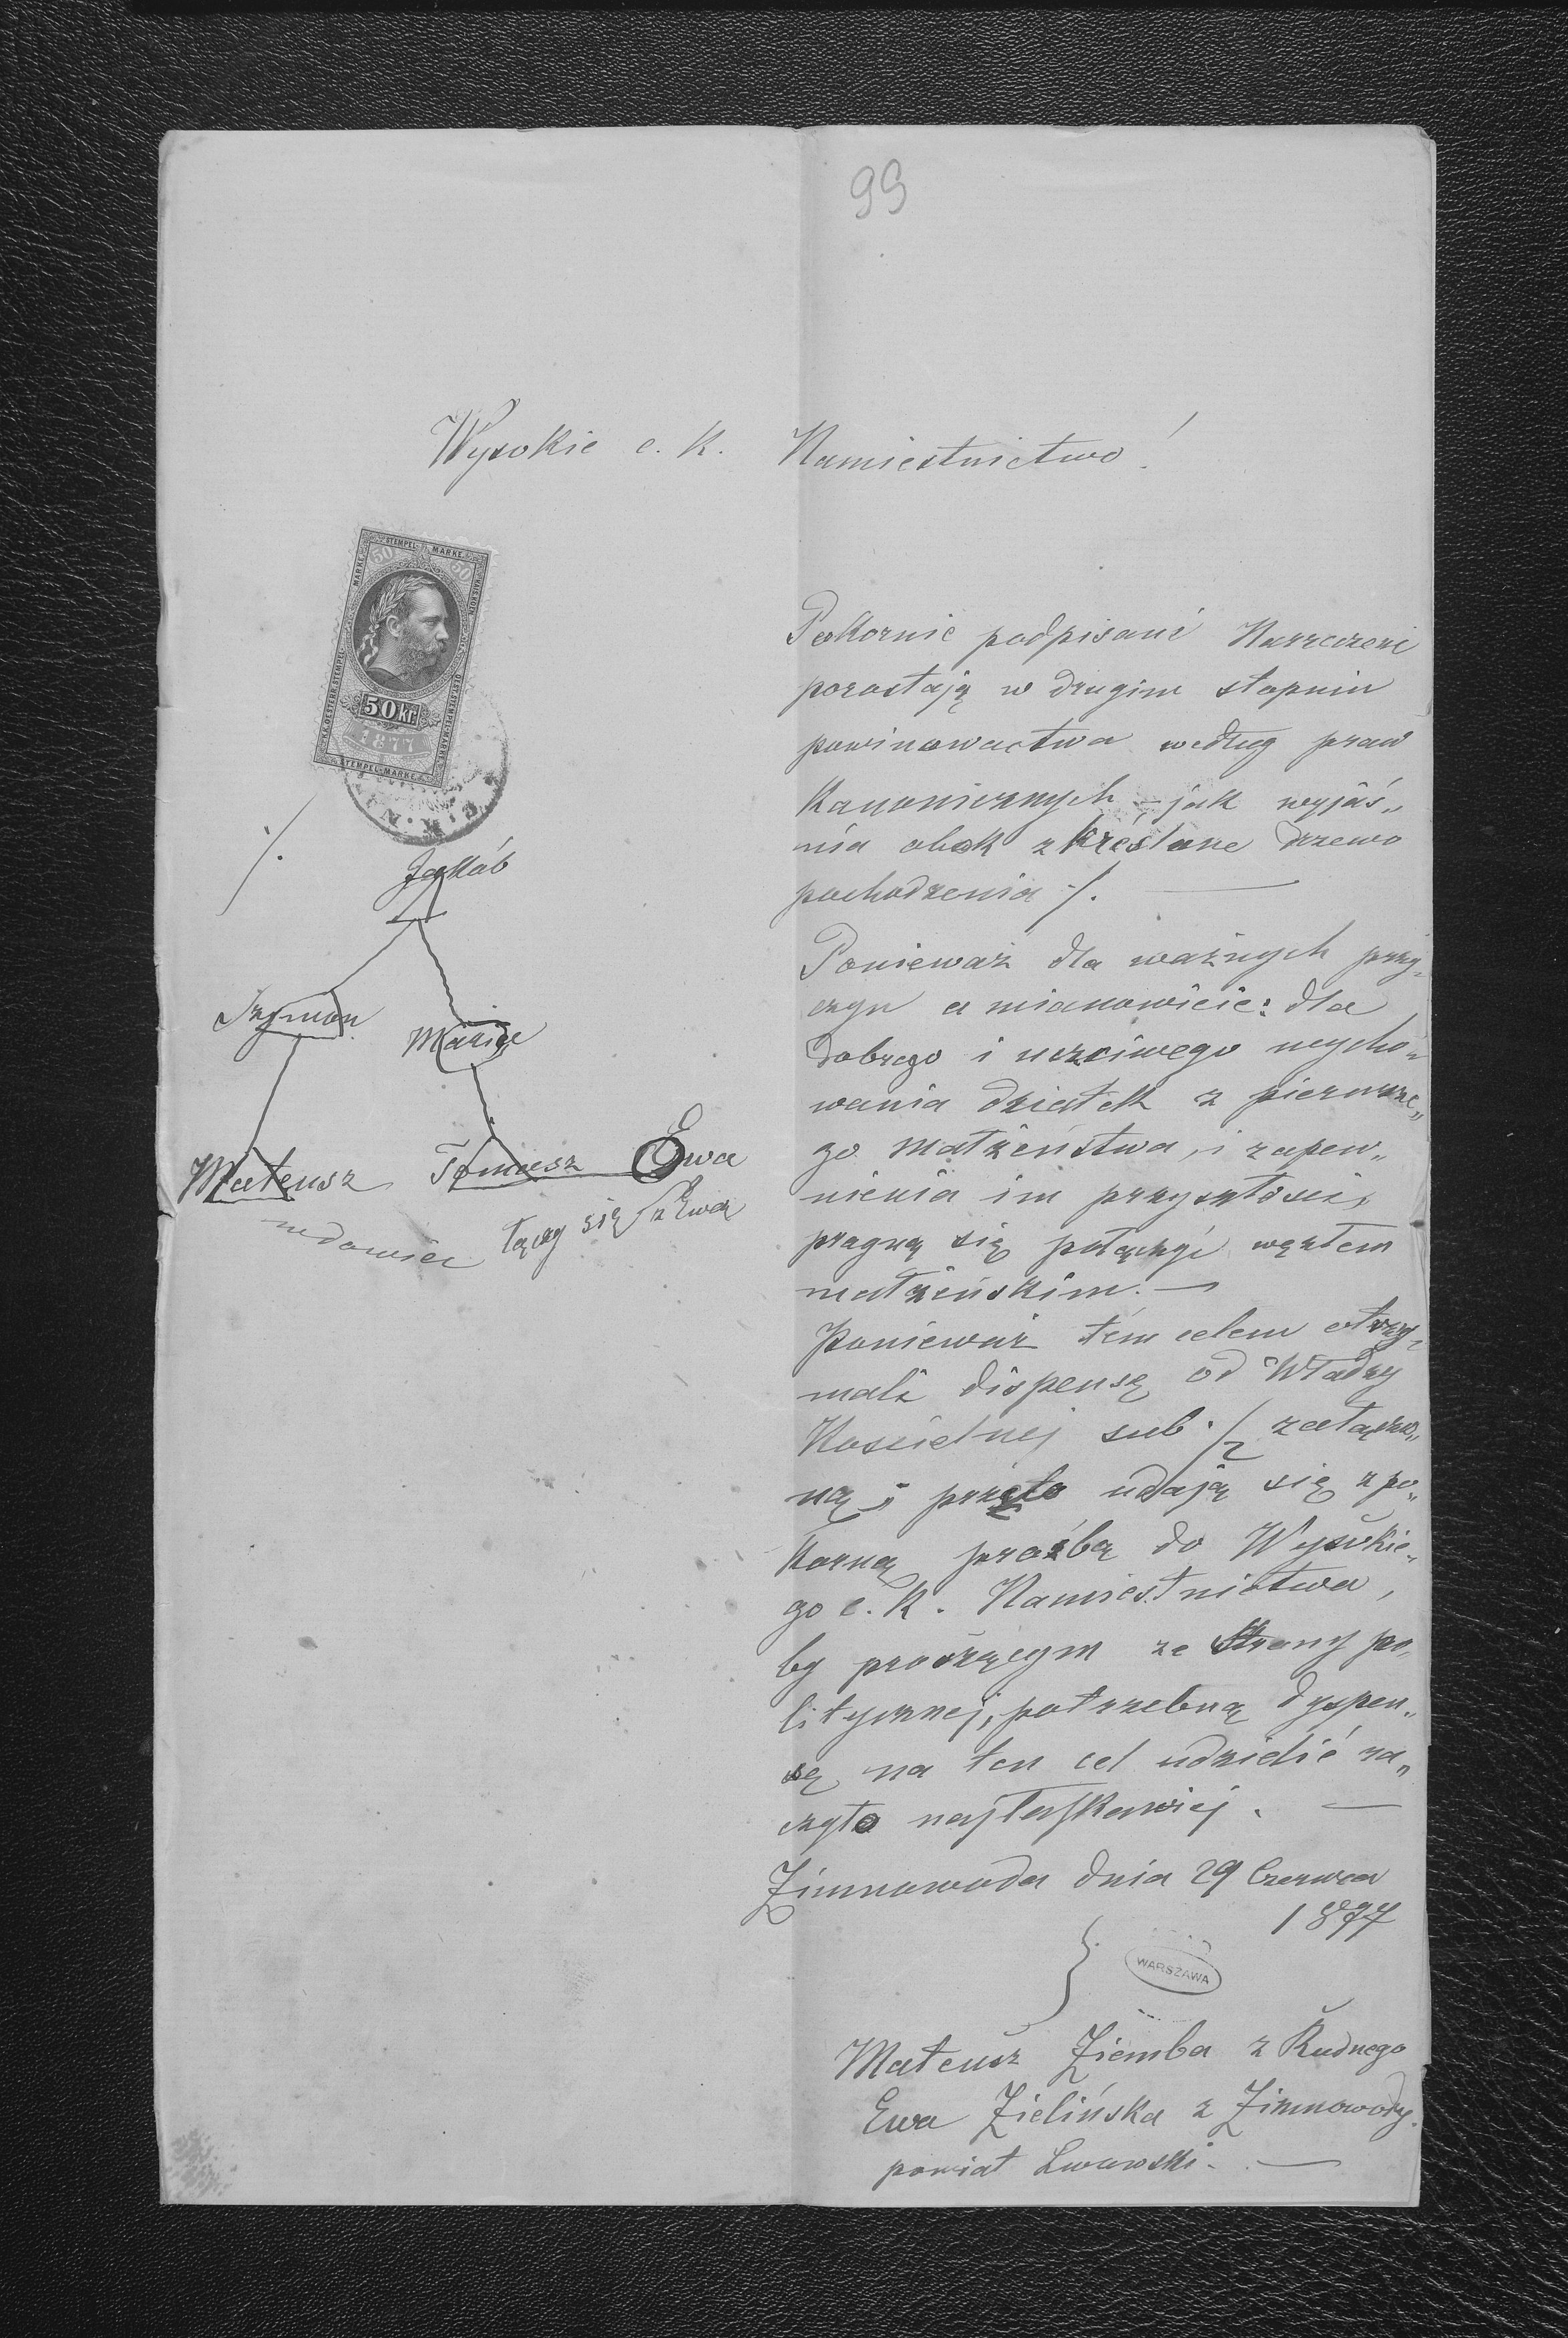 99
Wysokie c. k. Namiestnictwo!
STEMPEL MARKE
50 50
50 kr.
1877
STEMPEL-MARKE
Jakób
Szymon
Marię
Mateusz Tomasz Ewa
wdowiec łączy się z Ewą
Pokornie podpisani Narzeczeni
pozostają w drugim stopniu
powinowactwa według praw
Kanonicznych – jak wyjaś„
nia obok zkreślone drzewo
pochodzenia ·/.
Ponieważ dla ważnych przy„
czyn a mianowicie: dla
dobrego i uczciwego wycho„
wania dziatek z pierwsze„
go małżeństwa, i zapew„
nienia im przyszłości,
pragną się połączyć węzłem
małżeńskim. —
Ponieważ tém celem otrzy„
mali dispensę od Władzy
Kościelnej sub ·/2 załączo„
ną; przęto udają się z po„
korną prośbą do Wysokie„
go c. K. Namiestnictwa,
by proszącym ze Strony po„
litycznej, potrzebną dyspen„
sę na ten cel udzielić ra„
czyło najłaskawiej. —
Zimnowoda dnia 29 Czerwca
1877
WARSZAWA
Mateusz Ziemba z Rudnego
Ewa Zielińska z Zimnowody.
powiat Lwowski. —